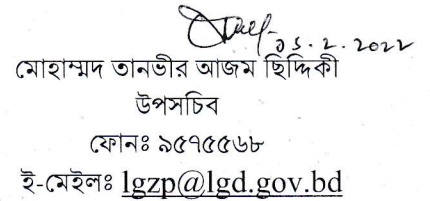 ১৫.২.২০২২
মোহাম্মদ তানভীর আজম ছিদ্দিকী
উপসচিব
ফোনঃ ৯৫৭৫৫৬৮
ই-মেইলঃ lgzp@lgd.gov.bd